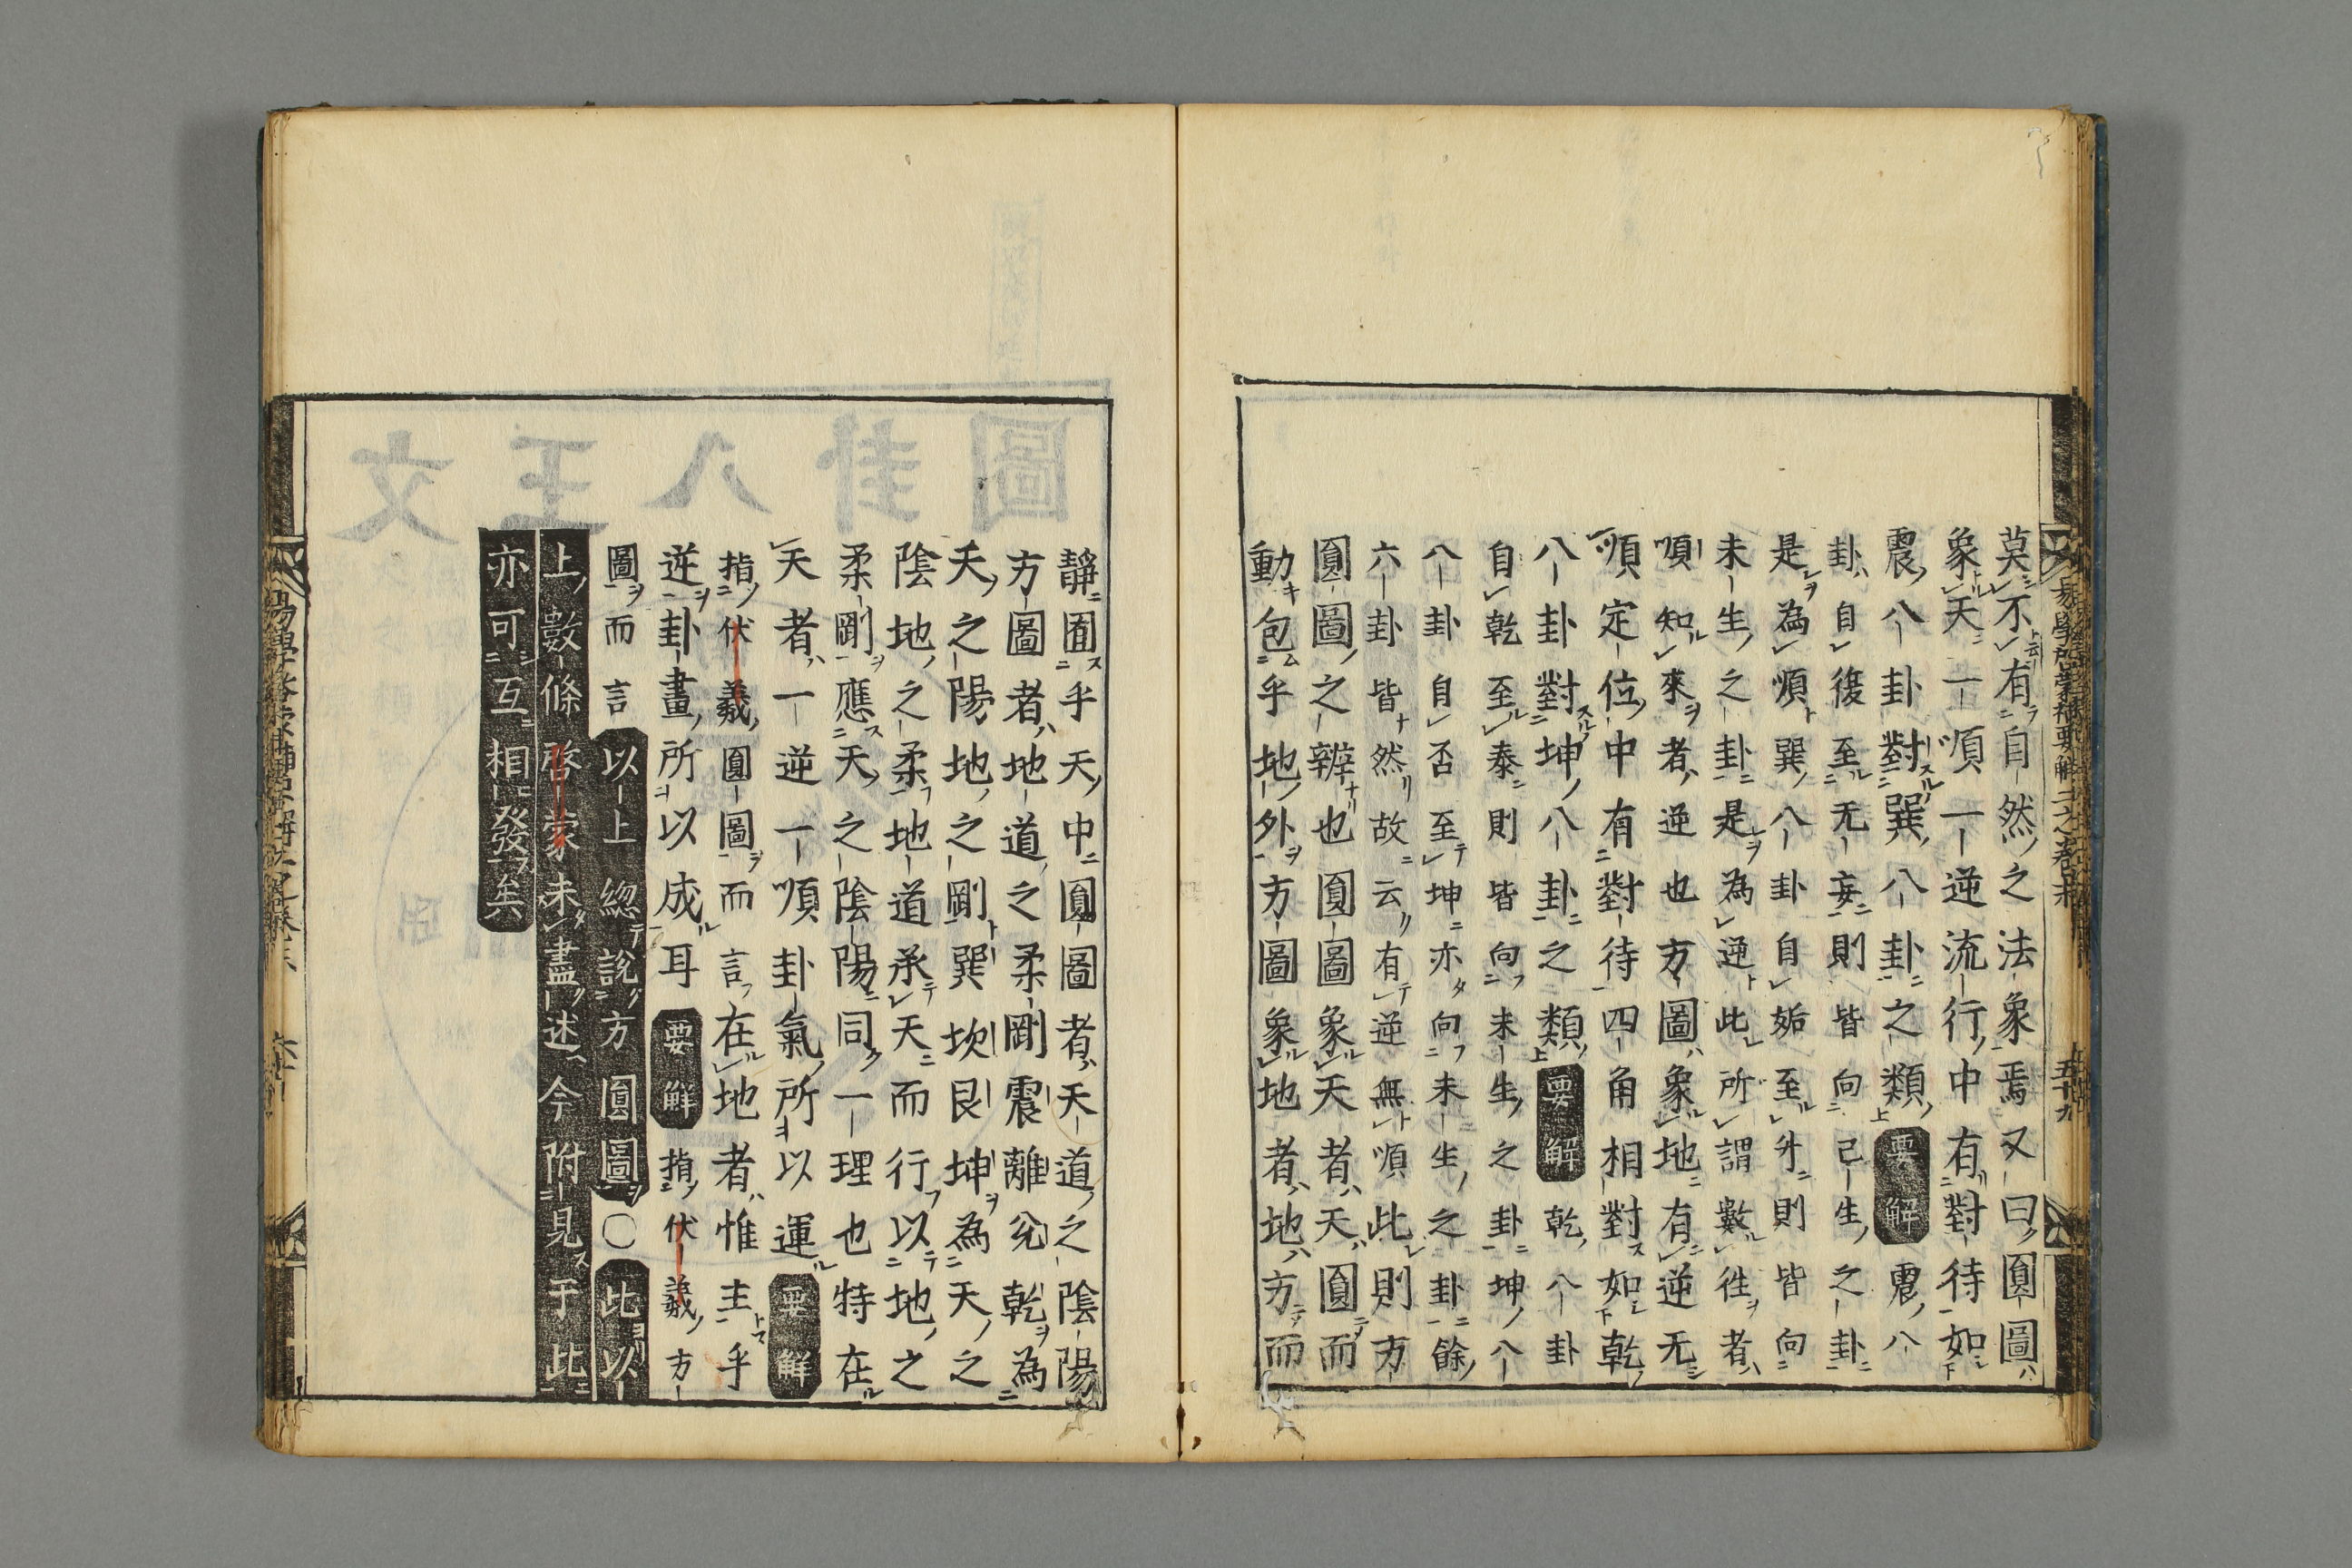 莫不有自然之法象焉又曰圓圖
象天一順一逆流行中有對待如
震八卦對巽八卦之類要解震八
卦自復至无妄則皆向已生之卦
是為順巽八卦自姤至升則皆向
未生之卦是為逆此所謂數徃者
順知來者逆也方圖象地有逆无
順定位中有對待四角相對如乾
八卦對坤八卦之類要解乾八卦
自乾至泰則皆向未生之卦坤八
八卦自否至坤亦向未生之卦餘
六卦皆然故云有逆無順此則方
圓圖之辨也圓圖象天者天圓而
動包乎地外方圖象地者地方而
五十九
靜囿乎天中圓圖者天道之陰陽
方圖者地道之柔剛震離兌乾為
天之陽地之剛巽坎艮坤為天之
陰地之柔地道承天而行以地之
柔剛應天之陰陽同一理也特在
天者一逆一順卦氣所以運要解
指伏羲圓圖而言在地者惟主乎
逆卦畫所以成耳要解指伏羲方
圖而言以上總說方圓圖〇此以
上數條啓蒙未盡述今附見于此
亦可互相發矣
圖卦八王文